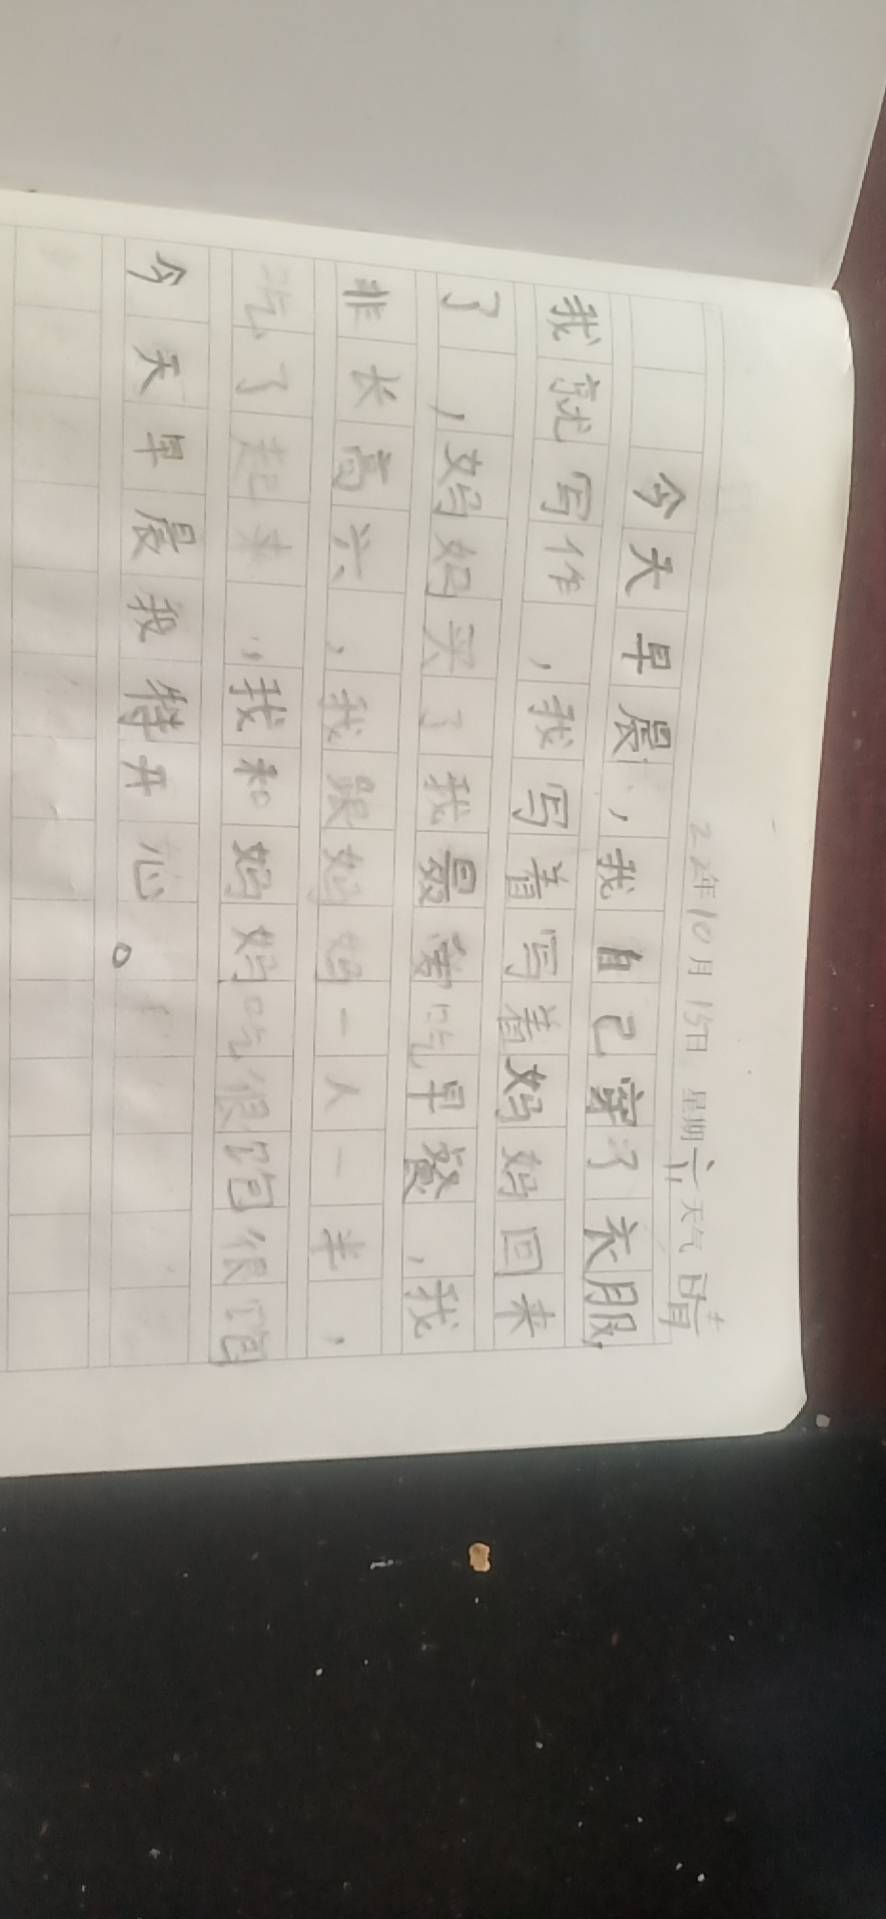 22年10月15日 星期六 天气 晴
今天早晨，我自己穿了衣服，
我就写作，我写着写着妈妈回来
了，妈妈买了我最爱吃早餐，我
非长高兴，我跟妈妈一人一半，
吃了起来，我和妈妈吃很饱很饱
今天早晨我特开心。